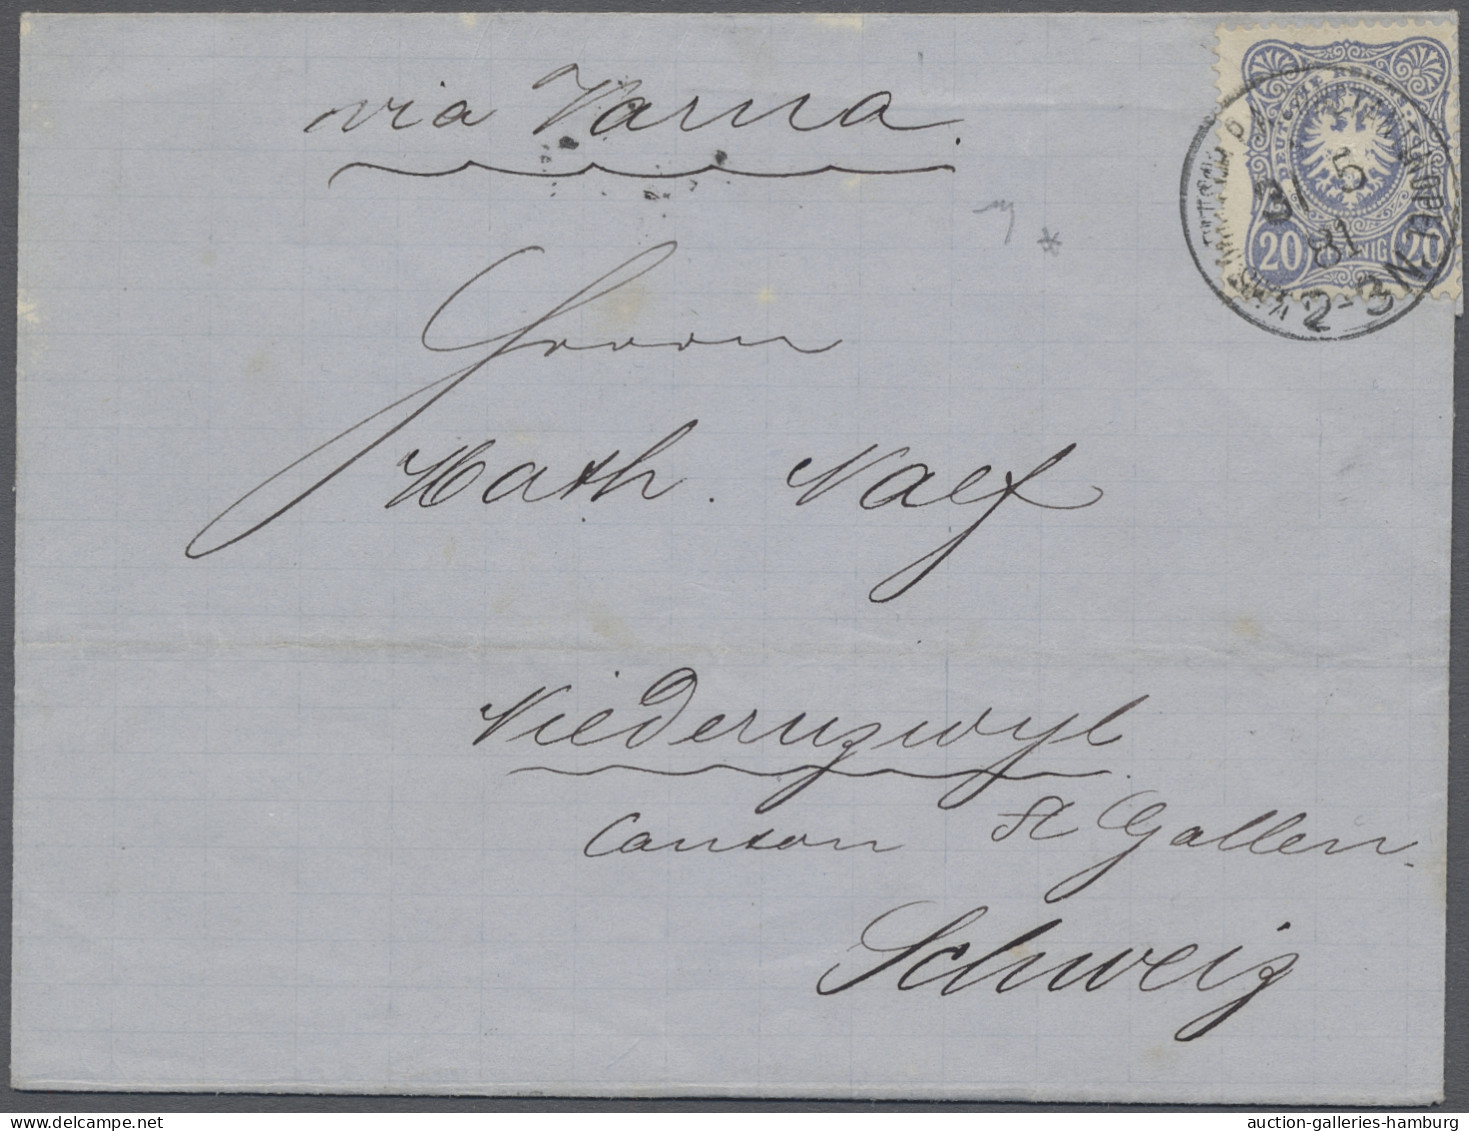 via Varna.
DEUTSCHE REICHS-POST
20 PFENNIG 20
KAIS. DEUTSCH. P.A. CONSTANTINOPEL
31 5
81
2-3 N
Herrn
Math. Naef
Niederuzwyl
Canton St Gallen
Schweiz
auction-galleries-hamburg.com